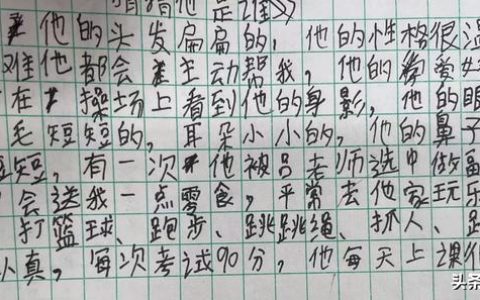 猜猜他是谁》
他的头发扁扁的，他的性格很温
难他都会主动帮我，他的爱好
在操场上看到他的身影，他的眼
毛短短的，耳朵小小的，他的鼻子
短短，有一次他被吕老师选中做副
会送我一点零食，平常去他家玩乐
打篮球、跑步、跳跳绳、抓人、
认真，每次考试90分，他每天上课很
头条